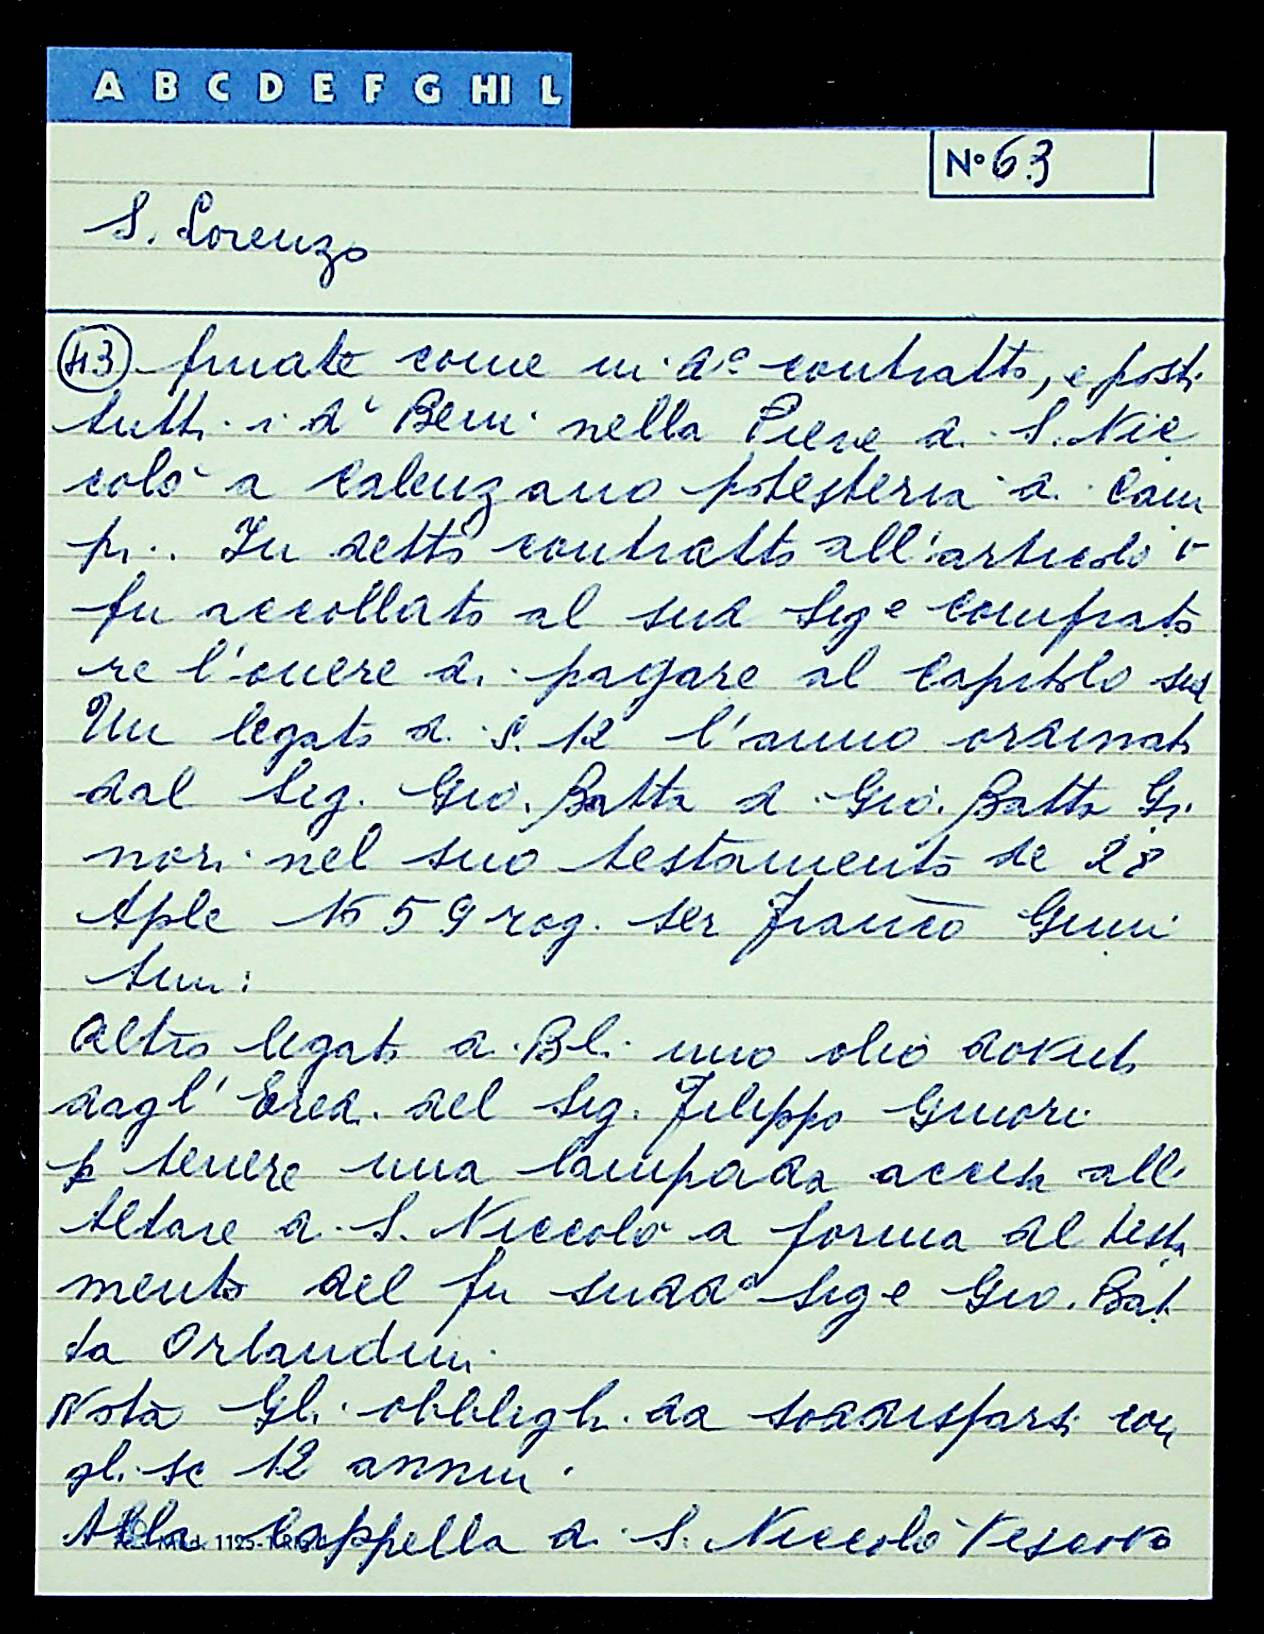 A B C D E F G HI L
N° 63
S. Lorenzo
(43) finate come in do contratto, e posti
tutti i di Beni nella Pieve di S. Nic
colò a Calenzano potesteria di Cam
pi. In detto contratto all'articolo
fu accollato al sud Sige Comprato
re l'onere di pagare al Capitolo sud
Un legato di S. 12 l'anno ordinato
dal Sig. Gio. Batta di Gio. Batta Gi
nori nel suo testamento de 28
Aple 1559 rog. Ser Franco Giuni
Altro legato di Bli uno olio dovuto
dagl' Eredi del Sig. Filippo Ginori
p tenere una lampada accesa all'
Altare di S. Niccolò a forma del testa
mento del fu sudd° Sige Gio. Bat
ta Orlandini
Nota Gli obblighi da soddisfarsi con
gli sc 12 annui
Alla Cappella di S. Niccolò Vescovo
Mod. 1125